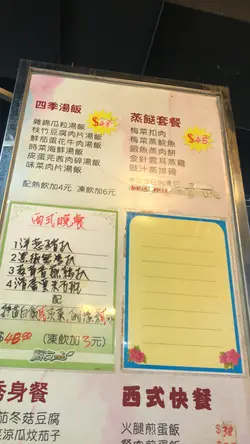 四季湯飯
雜錦瓜粒湯飯
枝竹豆腐肉片湯飯
鮮茄蛋花牛肉湯飯
時菜海鮮湯飯
皮蛋芫茜肉碎湯飯
味菜肉片湯飯
配熱飲加4元 凍飲加6元
蒸餸套餐
$45
梅菜扣肉
梅菜蒸鯇魚
銀魚蒸肉餅
金針雲耳蒸雞
豉汁蒸排骨
西式晚餐
1洋葱豬扒
2黑椒
3
4
配
$48.00 (凍飲加3元)
身餐
茄冬菇豆腐
涼瓜炆茄子
西式快餐
火腿煎蛋飯